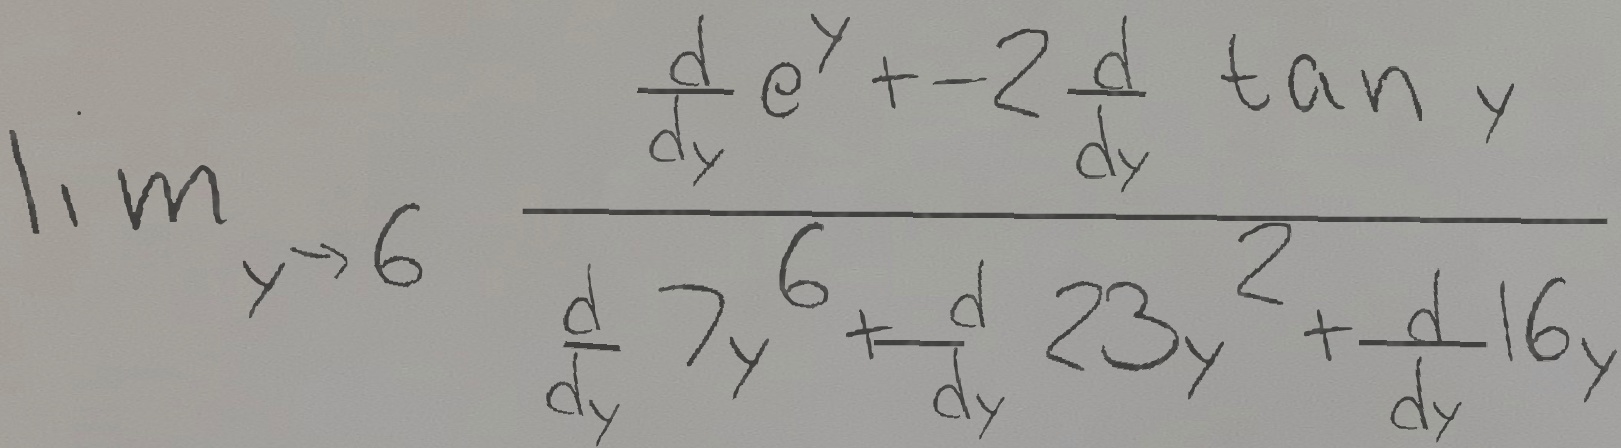 \lim_{y \to 6} \frac{\frac{d}{dy} e^{y} + -2 \frac{d}{dy} \tan y}{\frac{d}{dy} 7y^{6} + \frac{d}{dy} 23y^{2} + \frac{d}{dy} 16y}